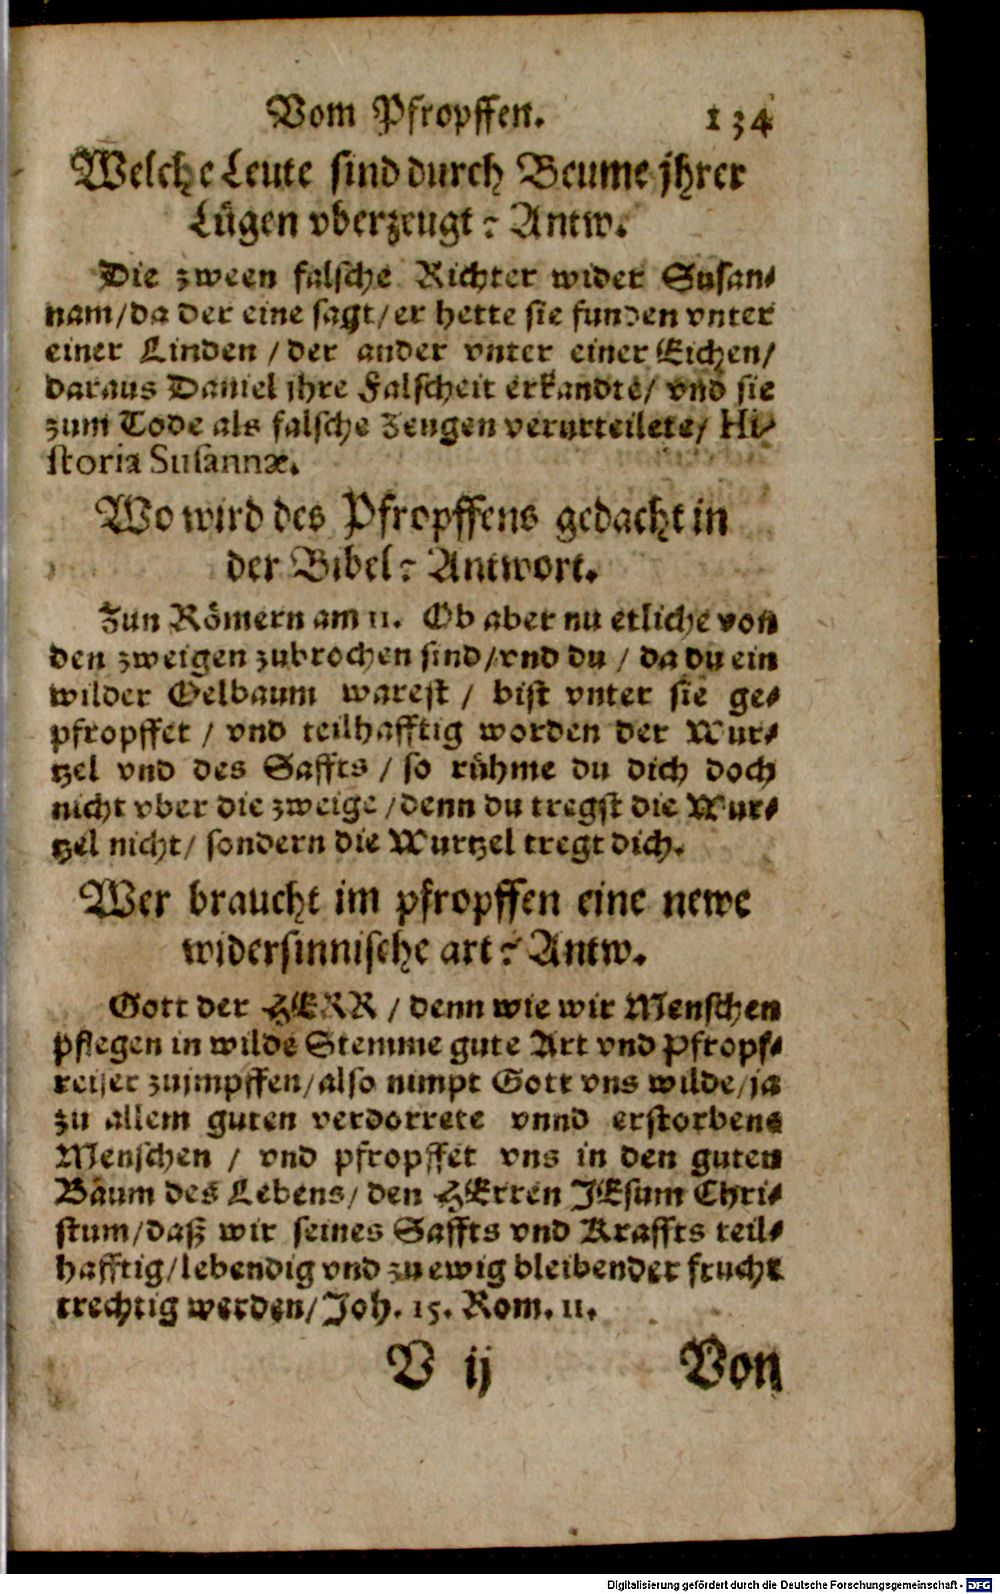 Vom Pfropffen. 134
Welche Leute sind durch Beume jhrer
Lügen vberzeugt? Antw.
Die zween falsche Richter wider Susan-
nam/da der eine sagt/er hette sie funden vnter
einer Linden /der ander vnter einer Eichen/
daraus Daniel ihre Falscheit erkandte/ vnd sie
zum Tode als falsche Zeugen verurteilete/ Hi-
storia Susannæ.
Wo wird des Pfropffens gedacht in
der Bibel? Antwort.
Zun Römern am 11. Ob aber nu etliche von
den zweigen zubrochen sind/vnd du / da du ein
wilder Oelbaum warest / bist vnter sie ge-
pfropffet / vnd teilhafftig worden der Wur-
tzel vnd des Saffts / so rühme du dich doch
nicht vber die zweige /denn du tregst die Wur-
tzel nicht/ sondern die Wurtzel tregt dich.
Wer braucht im pfropffen eine newe
widersinnische art? Antw.
Gott der HERR / denn wie wir Menschen
pflegen in wilde Stemme gute Art vnd Pfropf-
reiser zujmpffen/also nimpt Gott vns wilde/ja
zu allem guten verdorrete vnnd erstorbene
Menschen / vnd pfropffet vns in den guten
Baum des Lebens/ den HErren JEsum Chri-
stum/daß wir seines Saffts vnd Kraffts teil-
hafftig/lebendig vnd zu ewig bleibender frucht
trechtig werden/Joh. 15. Rom. 11.
V ij Von
Digitalisierung gefördert durch die Deutsche Forschungsgemeinschaft - DFG